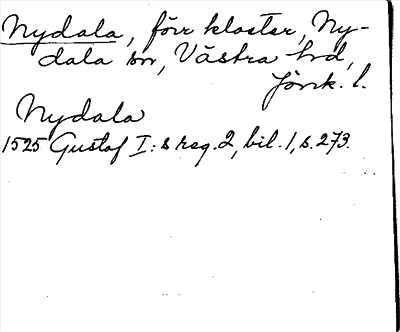 Nydala, förr kloster, Ny-
dala sn, Västra hd,
Jönk. l.
Nydala
1525 Gustaf I:s reg. 2, bil. 1, s. 273.